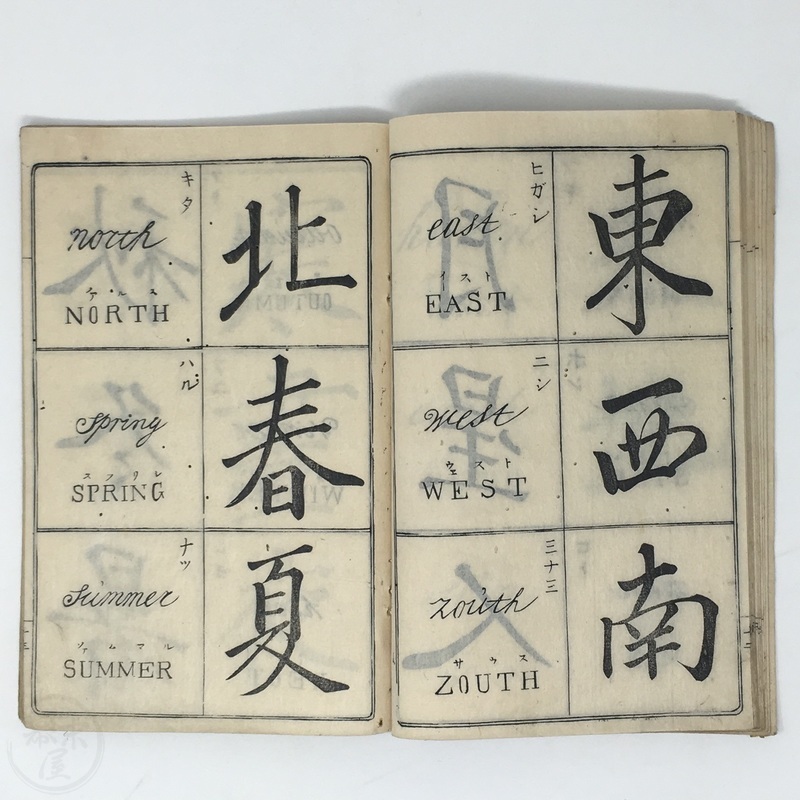 東
ヒガシ
east
イスト
EAST
西
ニシ
west
ウェスト
WEST
南
三ナミ
zouth
サウス
ZOUTH
北
キタ
north
NORTH
春
ハル
spring
スフリレ
SPRING
夏
ナツ
summer
ソァムマル
SUMMER